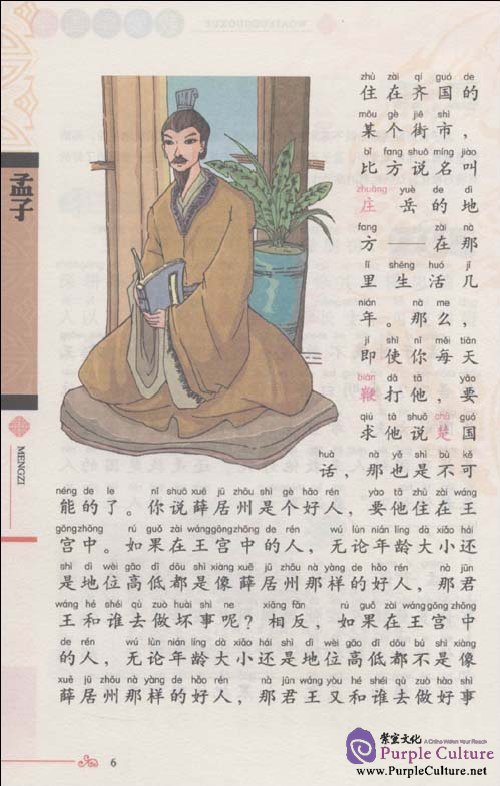 WOAIXUEGUOXUE
孟子
MENGZI
zhù zài qí guó de
住在齐国的
mǒu gè jiē shì
某个街市，
bǐ fang shuō míng jiào
比方说名叫
zhuāng yuè de dì
庄岳的地
fang zài nà
方——在那
lǐ shēng huó jǐ
里生活几
nián nà me
年。那么，
jí shǐ nǐ měi tiān
即使你每天
biān dǎ tā yāo
鞭打他，要
qiú tā shuō chǔ guó
求他说楚国
huà nà yě shì bù kě
话，那也是不可
néng de le nǐ shuō xuē jū zhōu shì gè hǎo rén yào tā zhù zài wáng
能的了。你说薛居州是个好人，要他住在王
gōng zhōng rú guǒ zài wáng gōng zhōng de rén wú lùn nián líng dà xiǎo hái
宫中。如果在王宫中的人，无论年龄大小还
shì dì wèi gāo dī dōu shì xiàng xuē jū zhōu nà yàng de hǎo rén nà jūn
是地位高低都是像薛居州那样的好人，那君
wáng hé shéi qù zuò huài shì ne xiāng fǎn rú guǒ zài wáng gōng zhōng
王和谁去做坏事呢？相反，如果在王宫中
de rén wú lùn nián líng dà xiǎo hái shì dì wèi gāo dī dōu bú shì xiàng
的人，无论年龄大小还是地位高低都不是像
xuē jū zhōu nà yàng de hǎo rén nà jūn wáng yòu hé shéi qù zuò hǎo shì
薛居州那样的好人，那君王又和谁去做好事
6
紫宸文化 A China Within Your Reach
Purple Culture
www.PurpleCulture.net